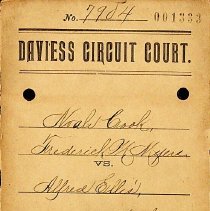 No. 7984 001333
DAVIESS CIRCUIT COURT.
Noah Cook,
Frederick W. Myers
VS.
Alfred Ellis,